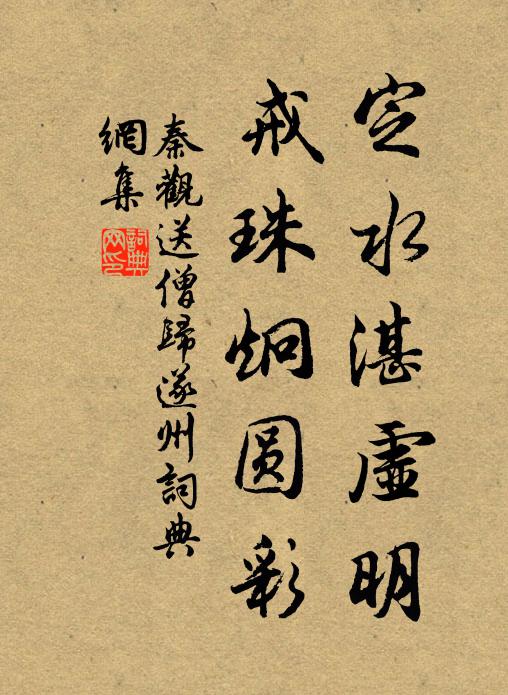 定水湛虛明
戒珠炯圓彩
秦觀送僧歸遂州詞典
網集
詞典
網印